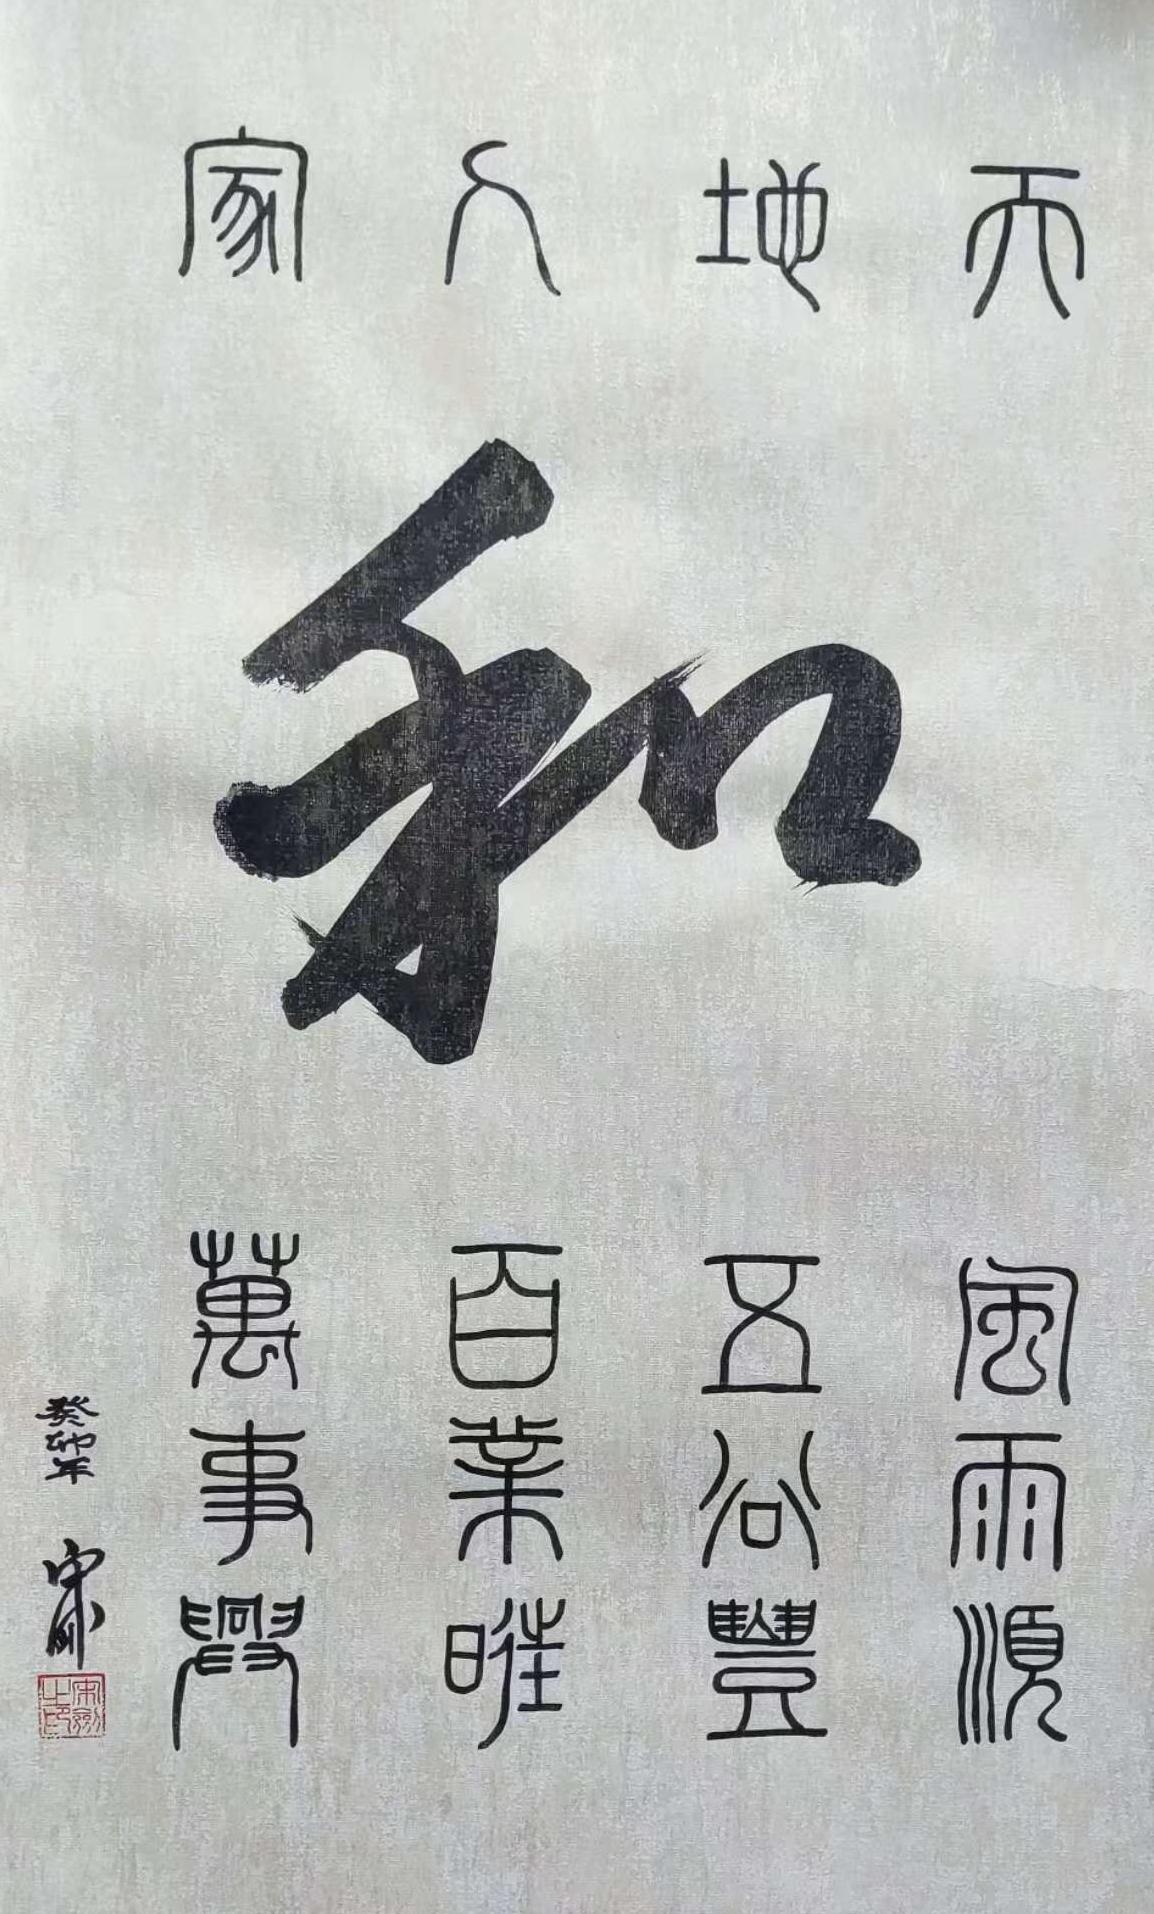 天地人家
和
風雨順
五谷豐
百業旺
萬事興
癸卯年
宋劍之印